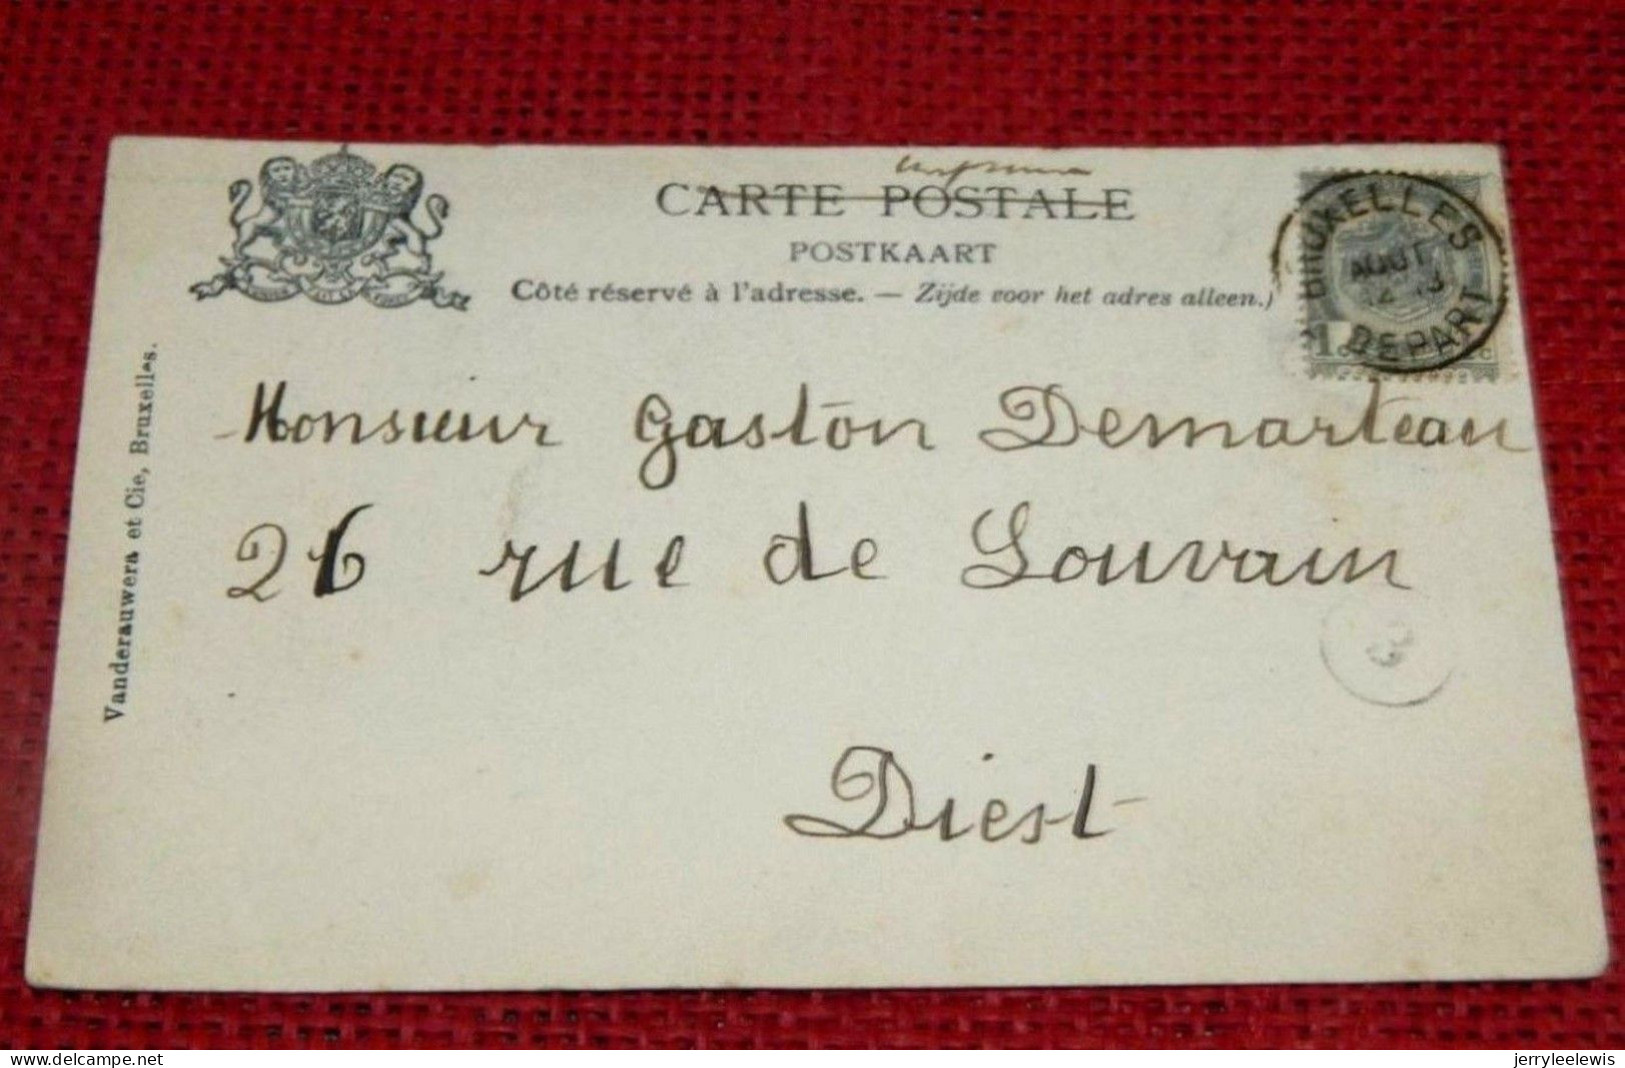 CARTE POSTALE
POSTKAART
Côté réservé à l'adresse. — Zijde voor het adres alleen.)
BRUXELLES
AOUT
DEPART
1
Vanderauwera et Cie, Bruxelles.
Monsieur Gaston Demarteau
26 rue de Louvain
Diest
https://www.delcampe.net
jerryleelewis